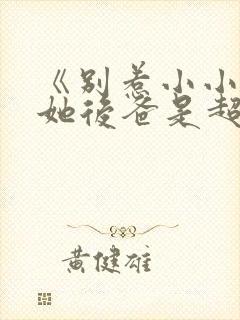 《別惹小小
她後爸是超
黃健雄